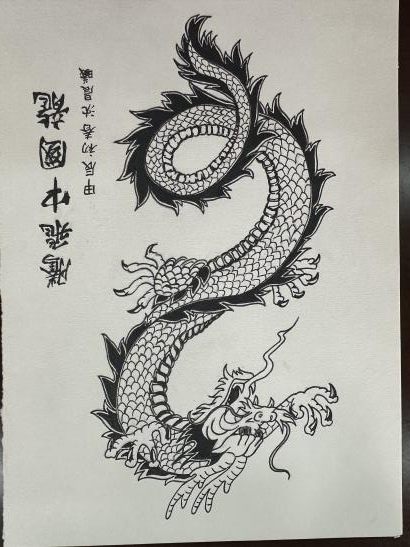 騰飛中國龍
甲辰初春沈晨曦